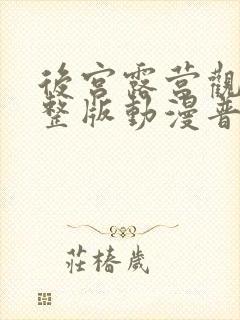 後宮露营觀
整版動漫普
莊椿歲